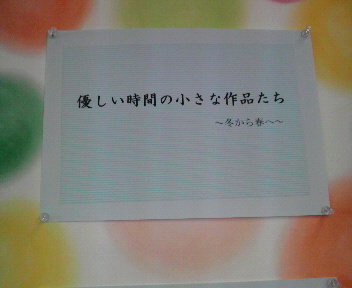 優しい時間の小さな作品たち
～冬から春へ～